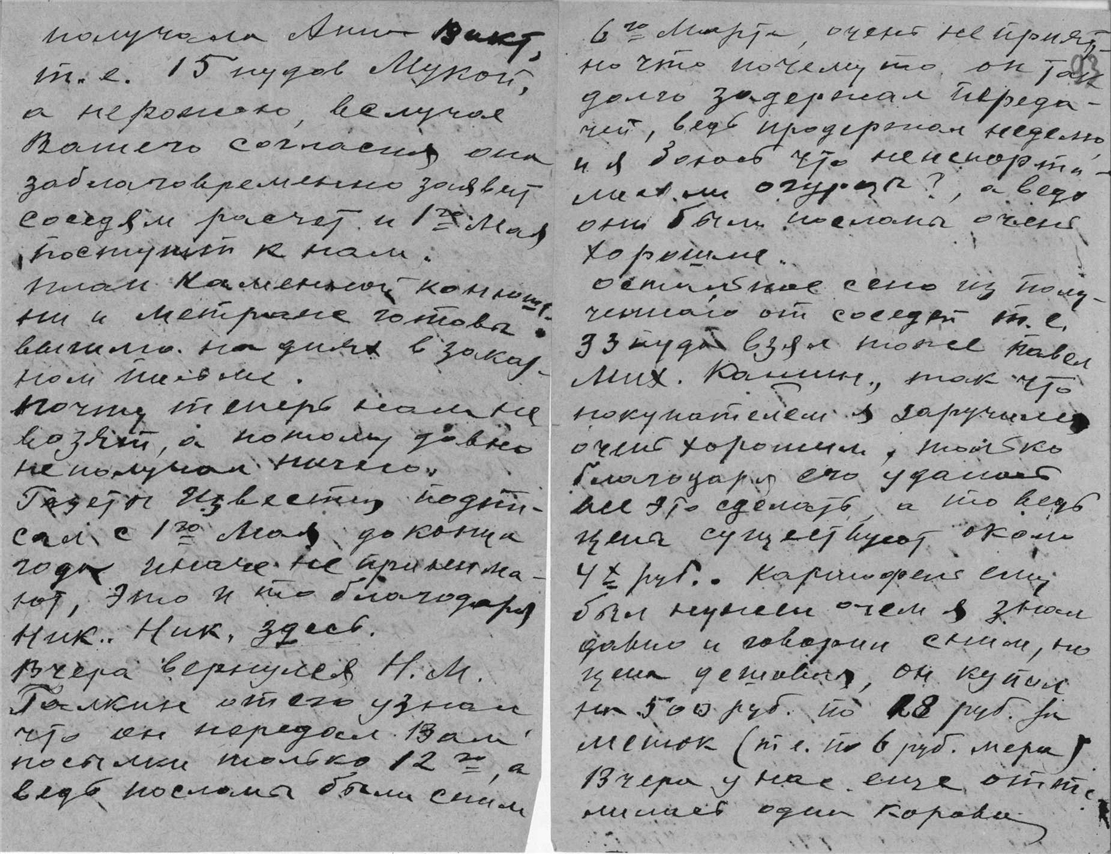 получала Анна Викт,
т.е. 15 пудов Мукой,
а не рожью, в случае
Вашего согласия она
заблаговременно заявит
соседям расчет и 1го Мая
поступит к нам.
План Каменной конюш-
ни и готовы
вышлю на днях в заказ-
ном письме.
Почту теперь нам не
возят, а потому давно
не получал ничего.
Газеты Известия подпи-
сал с 1го Мая до конца
года иначе не принима-
ют, Это и то благодаря
Ник.. Ник. здесь.
Вчера вернулся Н.М.
Галкин от его узнал
что он передал Вам
посылки только 12го, а
ведь посланы были с ним
93
6го Марта, очень не прият-
но что почему то он так
долго задержал переда-
чей, ведь продержал неделю
и я боюсь что не испорти-
лись ли огурцы?, а ведь
они были посланы очень
хорошие.
остальное сено из полу-
ченного от соседей т.е.
33 пуда взял тоже Павел
Мих. Камин., так что
покупателем я заручился
очень хорошим, только
благодаря его удалось
все это сделать, а то ведь
цена существует около
4х руб.. Картофель ему
был нужен о чем я знал
давно и говорил с ним, но
цена дешевая, он купил
на 500 руб. по 18 руб. за
мешок (т.е. по 6 руб. мера)
Вчера у нас еще отте-
лилась одна корова